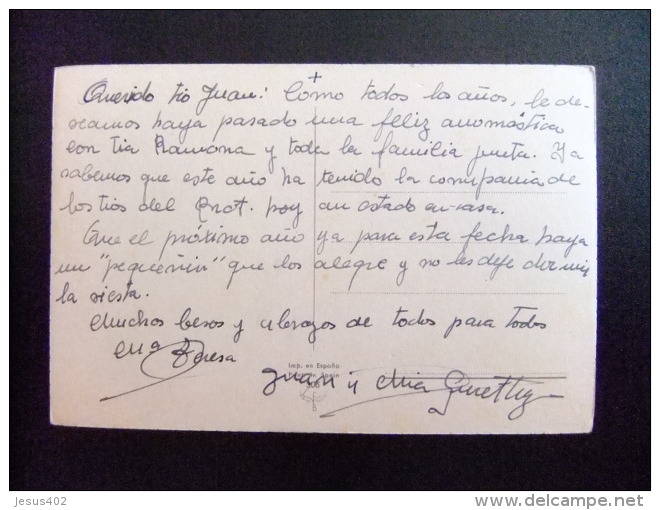 +
Querido tio Juan: Como todos los años, le de-
seamos haya pasado una feliz onomástica
con tia Ramona y toda la familia junta. Ya
sabemos que este año ha tenido la compañia de
los tios del Prat. hoy an estado en casa.
Que el próximo año ya para esta fecha haya
un "pequeñin" que los alegre y no les deje dormir
la siesta.
Muchos besos y abrazos de todos para todos
Mª Teresa
Imp. en España
Juan y Mia
Jesus402
www.delcampe.net